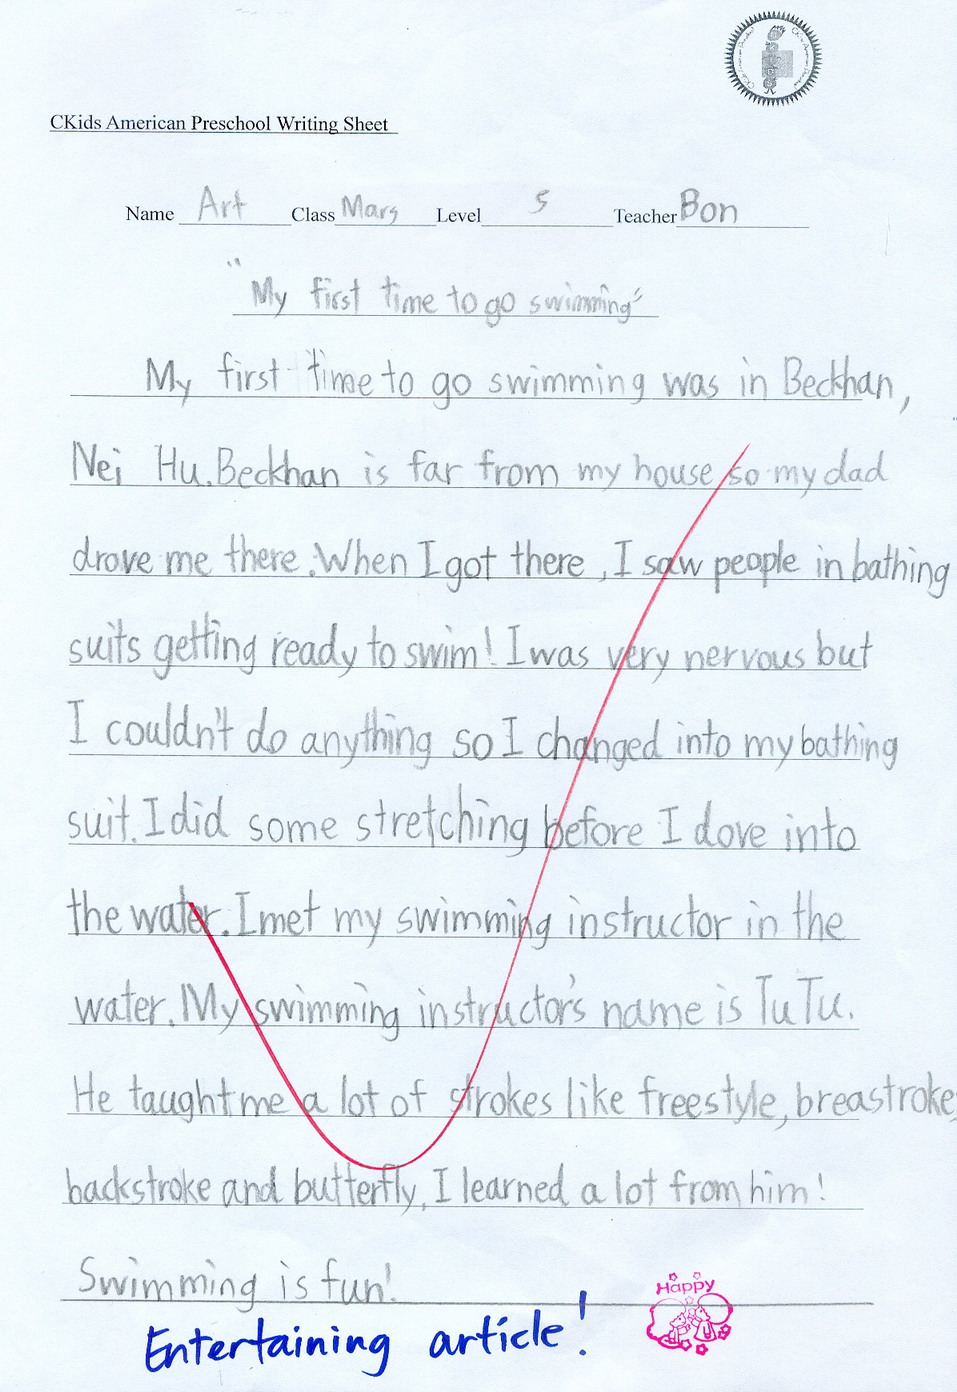 CKids American Preschool Writing Sheet
Name Art Class Mars Level 5 Teacher Bon
"My first time to go swimming"
My first time to go swimming was in Beckhan,
Nei Hu. Beckhan is far from my house so my dad
drove me there. When I got there, I saw people in bathing
suits getting ready to swim! I was very nervous but
I couldn't do anything so I changed into my bathing
suit. I did some stretching before I dove into
the water. I met my swimming instructor in the
water. My swimming instructor's name is TuTu.
He taught me a lot of strokes like freestyle, breastroke,
backstroke and butterfly. I learned a lot from him!
Swimming is fun!
Happy
Entertaining article!